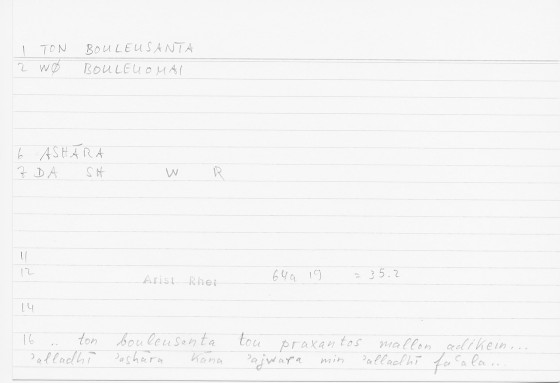 1 TON BOULEUSANTA
2 WØ BOULEUOMAI
6 ASHĀRA
7 DA SH W R
11
12 Arist Rhet 64a 19 = 35.2
14
16 .. ton bouleusanta tou praxantos mallon adikein...
ʾalladhī ʾashāra kāna ʾajwara min ʾalladhī faʿala...